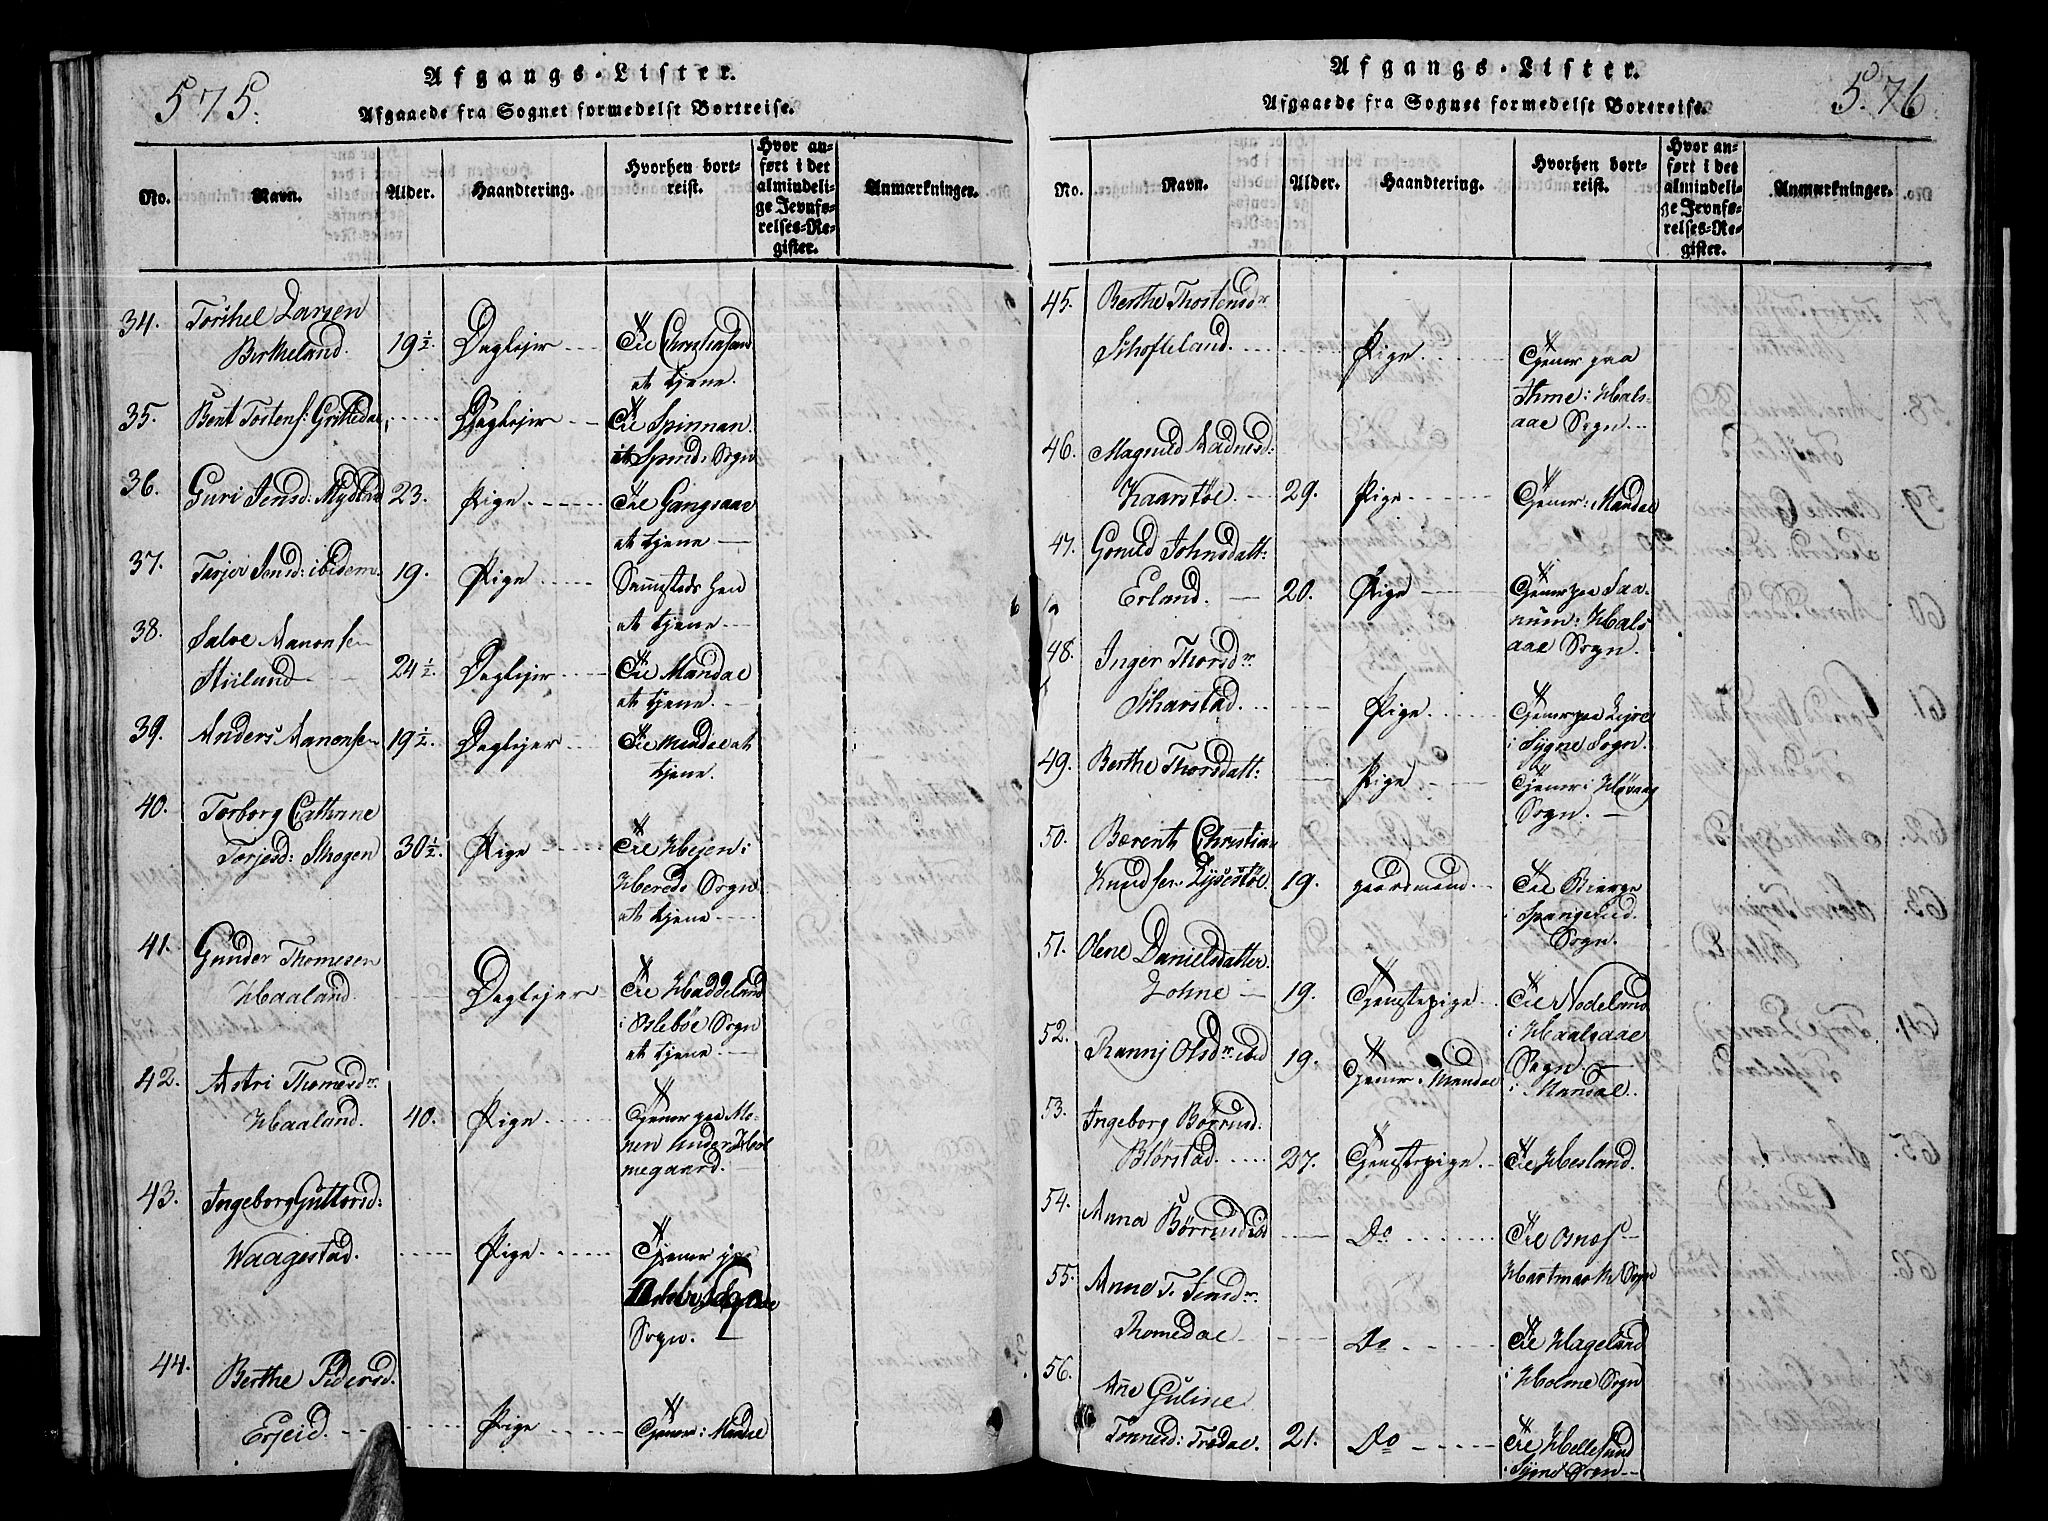 575.
Afgangs-Lister.
Afgaaede fra Sognet formedelst Bortreise.
No. Navn. Alder. Haandtering. Hvorhen bort-
reist.
Hvor an-
ført i det
almindeli-
ge Jevnfø-
relses-Re-
gister.
Anmærkninger.
34. Torkhel Larsen
Birkeland. 19½ Daglejer Til Christiansand
at tjene.
35. Bent Tostens: Grittedal, Daglejer Til Spinnan
Spind: Sogn
36. Guri Jensd: Mydland 23. Pige Til Gangsaae
at tjene
37. Tarjer Jensd: ibidem 19. Pige Sammesteds hen
at tjene
38. Salve Aanonsen
Stiland 24½ Daglejer Til Mandal
at tjene.
39. Anders Aanonsen 19½. Daglejer Til Mandal at
tjene.
40. Torborg Cathrine
Terjesd: Skogen 30½. Pige Til Højen i
Herreds Sogn
at tjene
41. Gunder Thomesen
Haaland. Daglejer Til Haddeland
i Oslebøe Sogn
at tjene.
42. Astri Thomesdr.
Haaland. 40. Pige Tjener paa Mo-
nen under Hol
megaard.
43. Ingeborg Guttorsd:
Waagestad. Pige. Tjener
Sogn.
44. Berthe Pedersd.
Erjeid. Pige Tjener i Mandal
5.76
Afgangs-Lister.
Afgaaede fra Sognet formedelst Bortreise.
No. Navn. Alder. Haandtering. Hvorhen bort-
reist.
Hvor an-
ført i det
almindeli-
ge Jevnfø-
relses-Re-
gister.
Anmærkninger.
45. Berthe Thostensdr
Skofteland. Pige. Tjener paa
Ihme i Hals-
aae Sogn.
46. Magnild Aadnesd:
Kaarstøl. 29. Pige Tjener i Mandal
47. Gonild Johnsdatt:
Erland. 20. Pige Tjener paa Saa-
num i Hals
aae Sogn.
48. Inger Thorsdr.
Skarstad. Pige. Tjener paa
i Søgne Sogn.
49. Berthe Thorsdatt: Pige Tjener i Høvaag
Sogn.
50. Bærent Christian
Knudsen Lysestøl. 19. gaardmand. Til Bierge
i Spangereid
Sogn.
51. Olene Danielsdatter
Lohne 19. Tjenistepige Til Nodeland
i Haalsaae
Sogn.
52. Rannj Olsdr. ibid 19. Tjener i Mandal i Mandal.
53. Ingeborg Børrusd:
Blørstad. 27. Tjenistepige. Til Hesland.
54. Anna Børrusd ibid Do Til Osnes
Hartmark Sogn
55. Anne T. Jensdr.
Romedal Do Til Hageland
i Holme Sogn
56. Ane Guline
Tønnesd: Trædal. 21. Do Til Hellesund
i Sygne Sogn